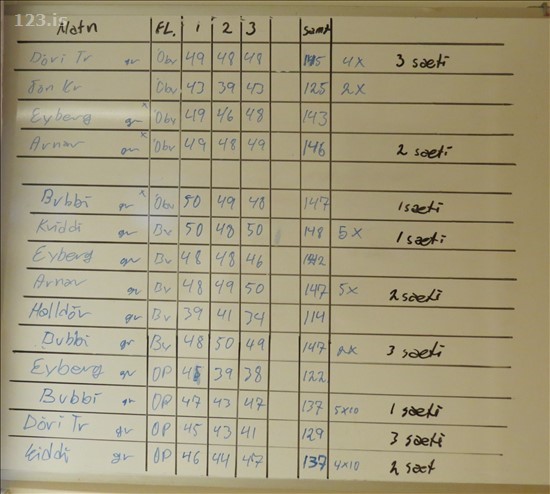 123.is
Nafn FL. 1 2 3 samt
Dóri Tr gr Óbr 49 48 48 145 4x 3 sæti
Jón Kr Óbr 43 39 43 125 2x
Eyberg gr x Óbr 49 46 48 143
Arnar gr x Óbr 49 48 49 146 2 sæti
Bubbi gr x Óbr 50 49 48 147 1 sæti
Kiddi gr Br 50 48 50 148 5x 1 sæti
Eyberg gr Br 48 48 46 142
Arnar gr Br 48 49 50 147 5x 2 sæti
Halldór gr Br 39 41 34 114
Bubbi gr Br 48 50 49 147 2x 3 sæti
Eyberg gr OP 45 39 38 122
Bubbi gr OP 47 43 47 137 5x10 1 sæti
Dóri Tr gr OP 45 43 41 129 3 sæti
Kiddi gr OP 46 44 47 137 4x10 2 sæt